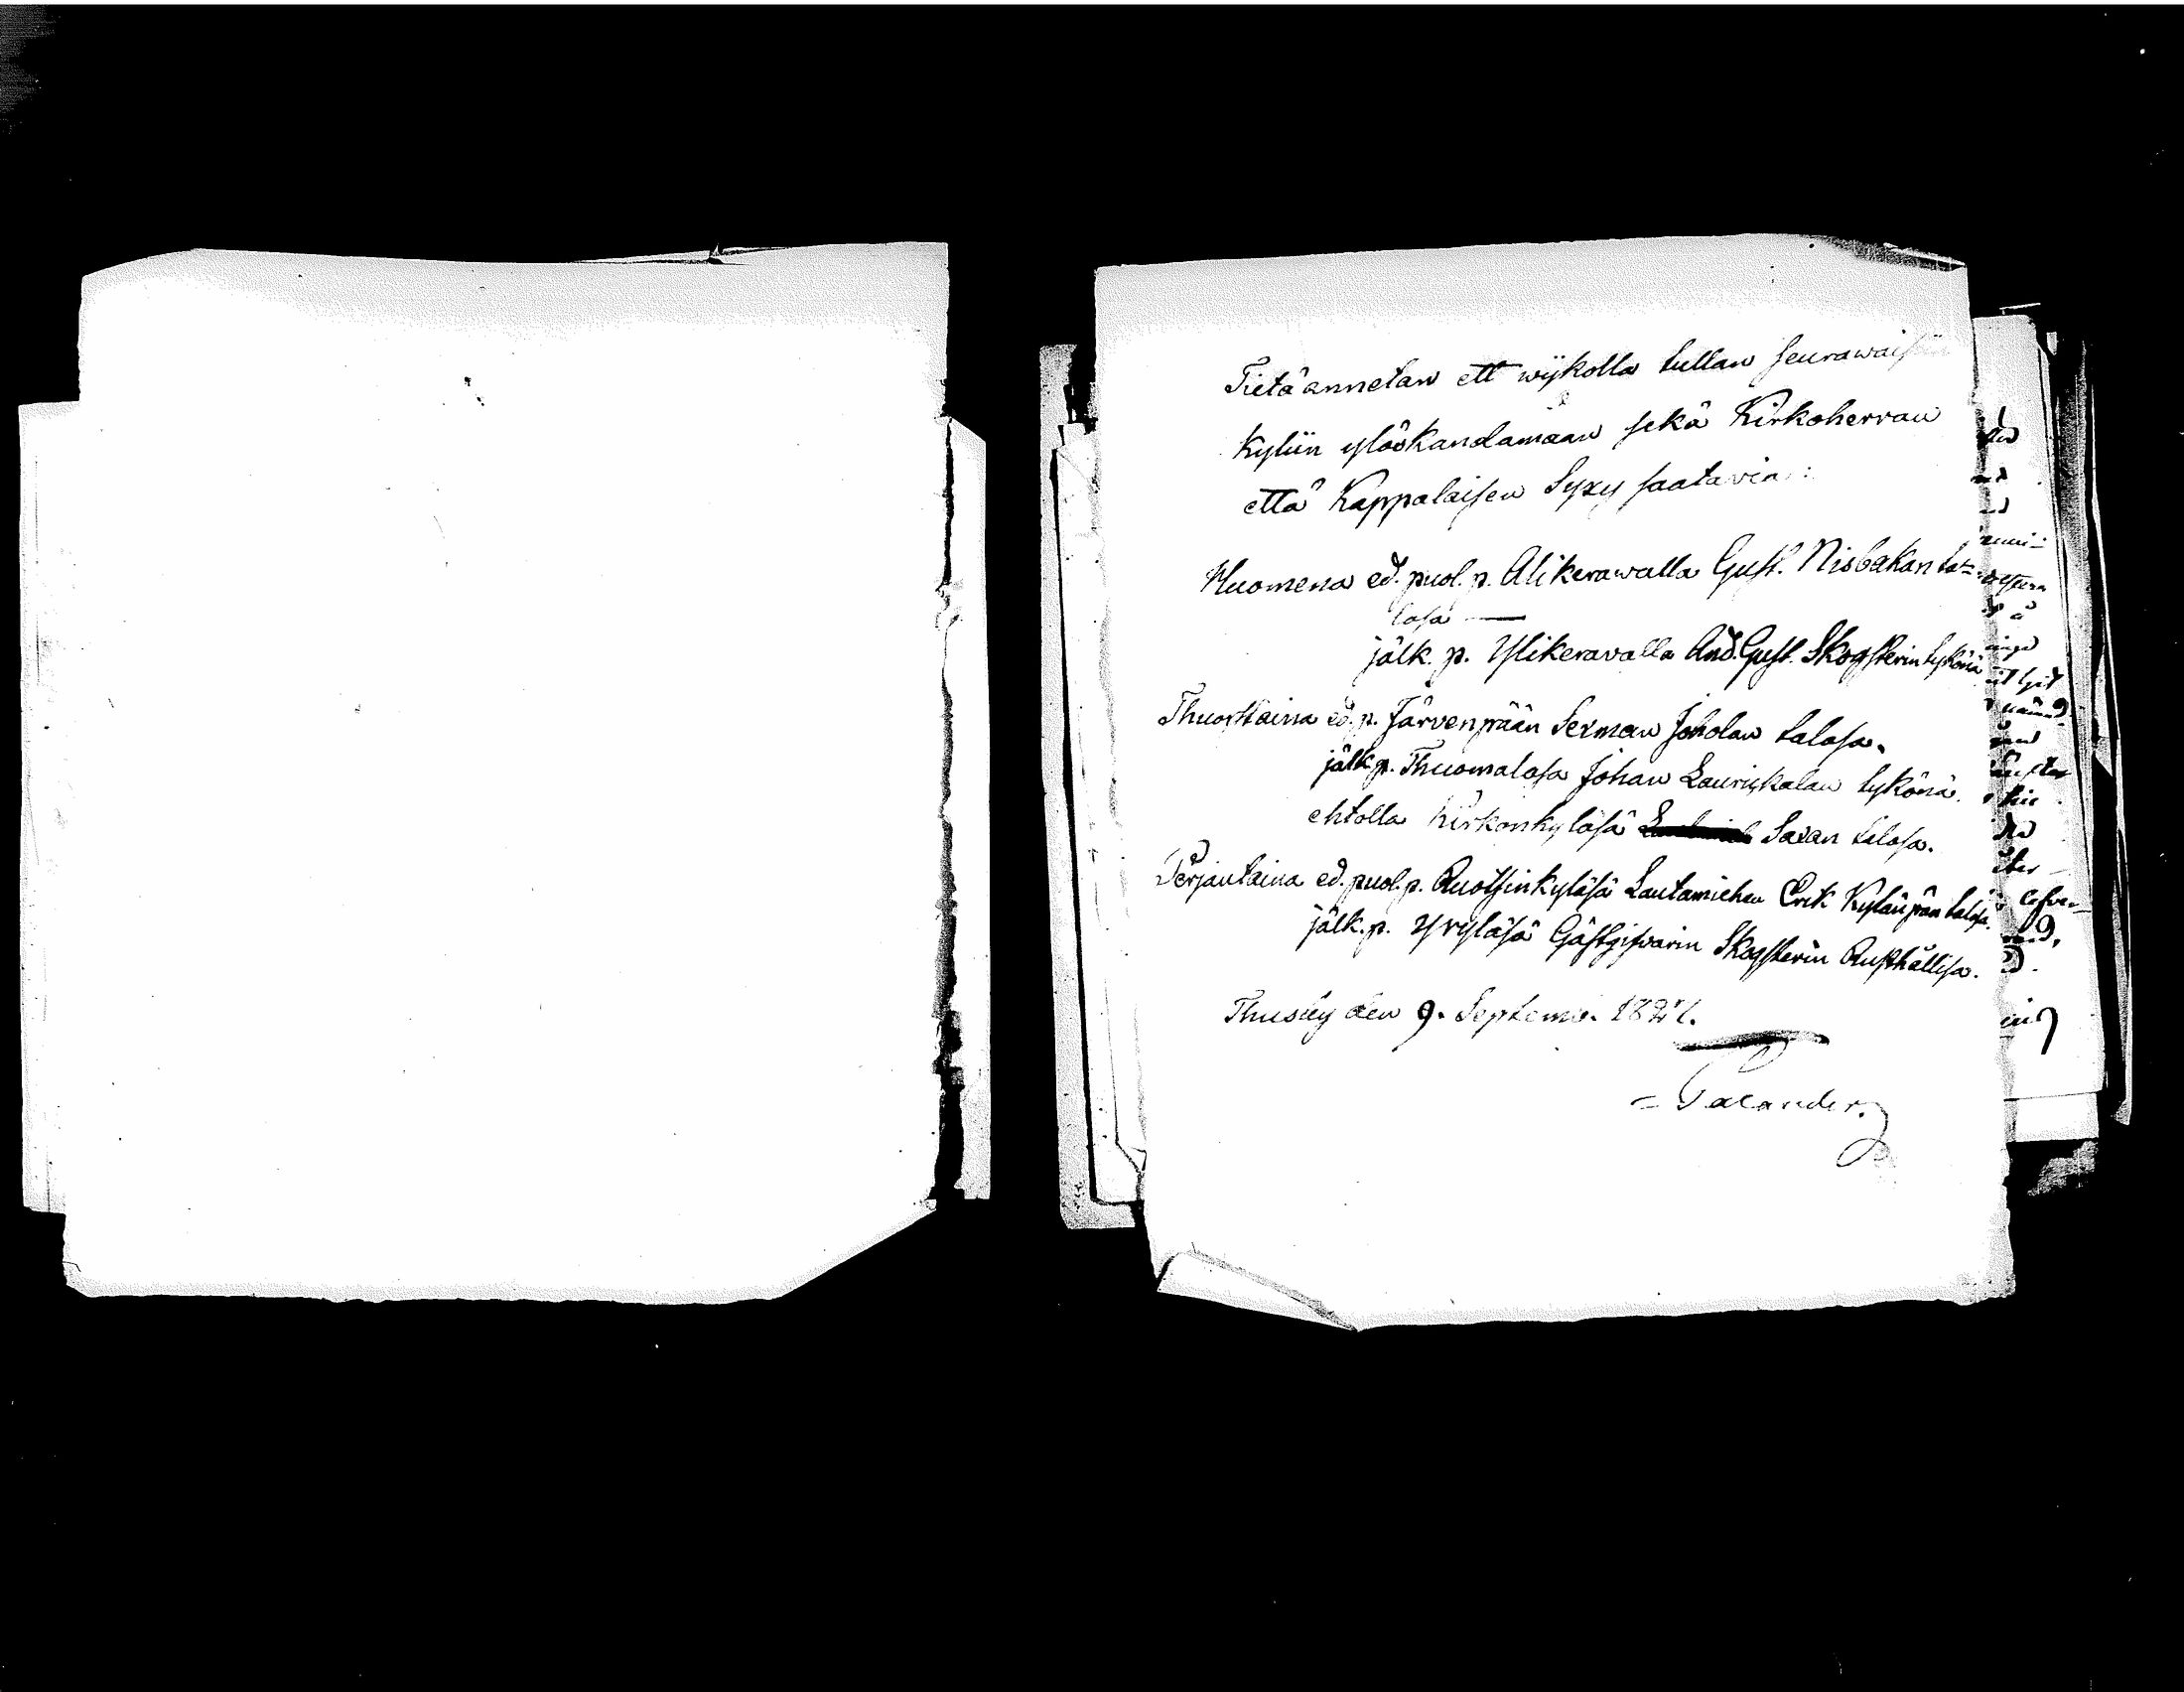 Tietä annetan ett wijkolla tullan seurawaisiin
kyliin ylöskandamaan sekä Kirkoherran
että Kappalaisen Syxy saatavia:
Huomena ed. puol. p. Alikerawalla Gust. Nisbakan ta=
losa —
jälk. p. Ylikeravalla And. Gust. Skogsterin tykönä
Thuorstaina ed. p. Järvenpään Sexman Joholan talosa.
jälk. p. Thuomalasa Johan Laurickalan tykönä.
ehtolla Kirkonkyläsä Saxan talosa.
Perjantaina ed. puol. p. Ruotsinkyläsä Lautamiehen Erik Kylänpän talosa.
jälk. p. Yryläsä Gästgifvarin Skogsterin Rusthållisa.
Thusby den 9. Septemb. 1827.
Palander.